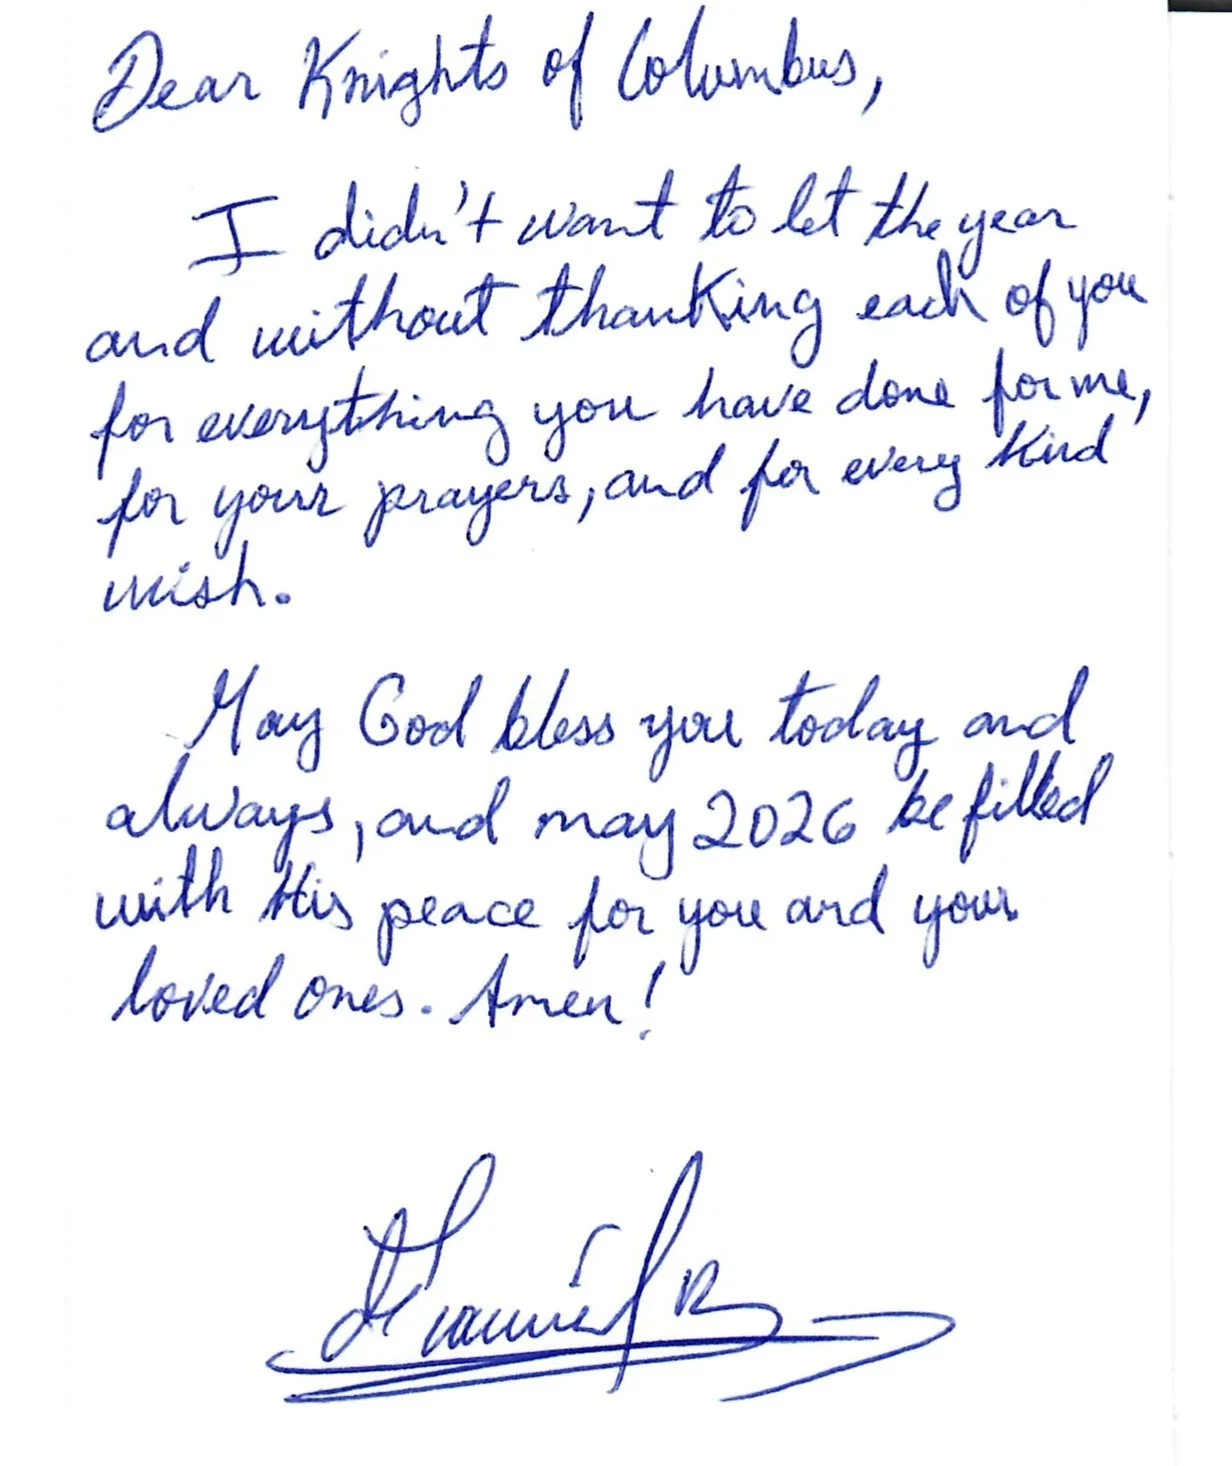 Dear Knights of Columbus,
I didn't want to let the year
and without thanking each of you
for everything you have done for me,
for your prayers, and for every kind
wish.
May God bless you today and
always, and may 2026 be filled
with His peace for you and your
loved ones. Amen!